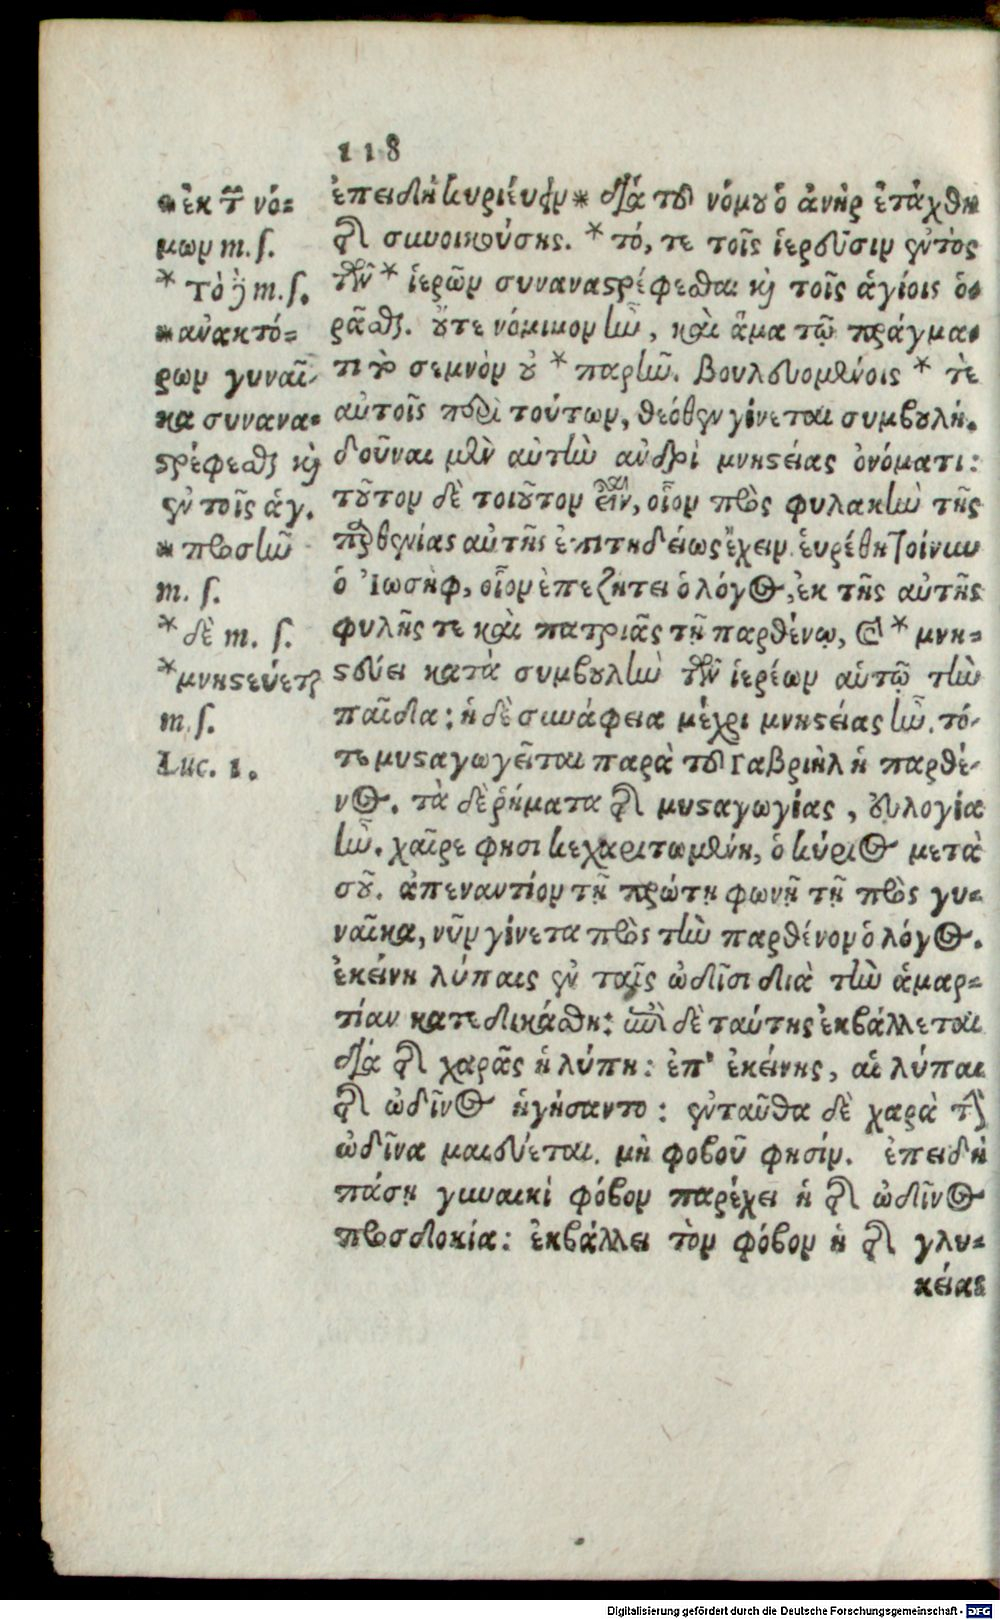 118
ἐπειδὴ κυριεύειν * διὰ τοῦ νόμου ὁ ἀνὴρ ἐτάχθη
τῆς συνοικούσης. * τό, τε τοῖς ἱεροῦσιν ἐντὸς
τῶν * ἱερῶν συναναστρέφεσθαι καὶ τοῖς ἁγίοις ὁ-
ρᾶσθαι. οὔτε νόμιμον ἦν, καὶ ἅμα τῷ πράγμα-
τι τὸ σεμνὸν οὐ * παρῆν. βουλευομένοις * τὲ
αὐτοῖς περὶ τούτων, θεόθεν γίνεται συμβουλή.
δοῦναι μὲν αὐτὴν ἀνδρὶ μνηστείας ὀνόματι:
τοῦτον δὲ τοιοῦτον εἶναι, οἷον πρὸς φυλακὴν τῆς
παρθενίας αὐτῆς ἐπιτηδείως ἔχειν. εὑρέθη τοίνυν
ὁ Ἰωσὴφ, οἷον ἐπεζήτει ὁ λόγος, ἐκ τῆς αὐτῆς
φυλῆς τε καὶ πατριᾶς τῇ παρθένῳ, καὶ * μνη-
στεύει κατὰ συμβουλὴν τῶν ἱερέων αὑτῷ τὴν
παῖδα: ἡ δὲ συνάφεια μέχρι μνηστείας ἦν. τό-
τε μυσταγωγεῖται παρὰ τοῦ Γαβριὴλ ἡ παρθέ-
νος. τὰ δὲ ῥήματα τῆς μυσταγωγίας, εὐλογία
ἦν. χαῖρε φησι κεχαριτωμένη, ὁ κύριος μετὰ
σοῦ. ἀπεναντίον τῇ πρώτῃ φωνῇ τῇ πρὸς γυ-
ναῖκα, νῦν γίνετα πρὸς τὴν παρθένον ὁ λόγος.
ἐκείνη λύπαις ἐν ταῖς ὠδῖσι διὰ τὴν ἁμαρ-
τίαν κατεδικάσθη: ἐπὶ δὲ ταύτης ἐκβάλλεται
διὰ τῆς χαρᾶς ἡ λύπη: ἐπ' ἐκείνης, αἱ λύπαι
τῆς ὠδῖνος ἡγήσαντο: ἐνταῦθα δὲ χαρὰ τὴν
ὠδῖνα μαιεύεται. μὴ φοβοῦ φησίν. ἐπειδὴ
πάσῃ γυναικὶ φόβον παρέχει ἡ τῆς ὠδῖνος
προσδοκία: ἐκβάλλει τὸν φόβον ἡ τῆς γλυ-
κείας
* ἐκ τῶν νό-
μων m. s.
* τὸ m. s.
* ἀνακτό-
ρων γυναῖ-
κα συνανα-
στρέφεσθαι καὶ
ἐν τοῖς ἁγ.
* προσῆν
m. s.
* δὲ m. s.
* μνηστεύεται
m. s.
Luc. 1.
Digitalisierung gefördert durch die Deutsche Forschungsgemeinschaft - DFG